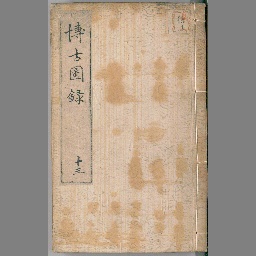 博古圖錄
十三